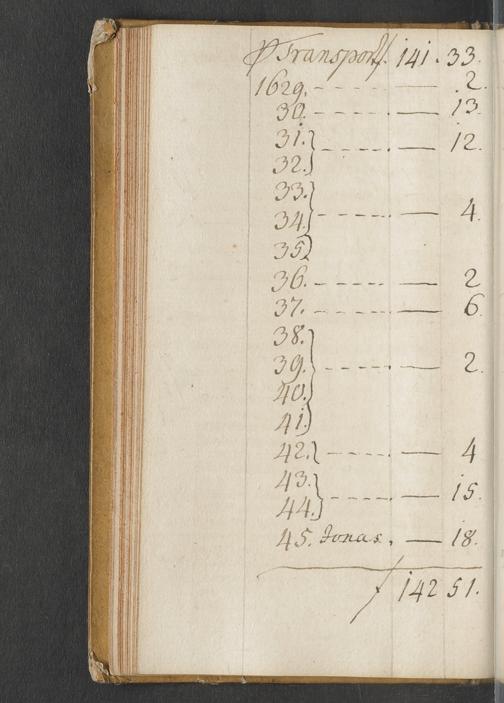 ℘ Transport f. 141. 33.
1629. - - - - - — . 2.
30. - - - - - — 13.
31. } - - - - - — 12.
32. }
33. }
34. } - - - - - — 4.
35 }
36. - - - - - — 2
37. - - - - - — 6.
38. }
39. } - - - - - — 2.
40. }
41. }
42. } - - - - - — 4
43. }
44. } - - - - - — 15.
45. Jonas. — 18.
f 142 51.